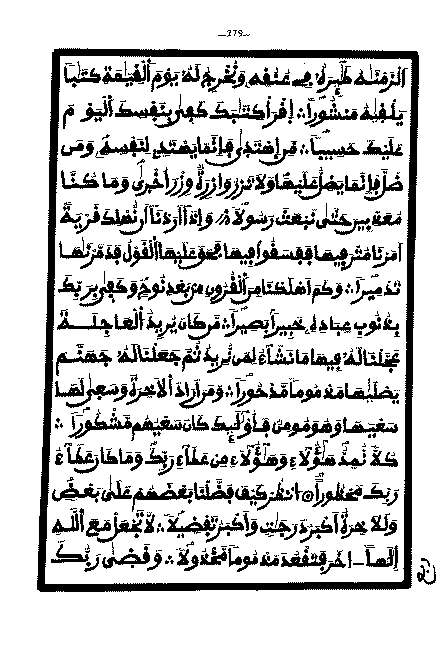 —279—
ألزمنه طئره في عنقه ونخرج له يوم القيمة كتبا
يلقيه منشورا ∴ اقرأ كتبك كفى بنفسك اليوم
عليك حسيبا ∴ من اهتدى فإنما يهتدى لنفسه ومن
ضل فإنما يضل عليها ولا تزر وازرة وزر أخرى وما كنا
معذبين حتى نبعث رسولا ∴ وإذا أردنا أن نهلك قرية
أمرنا مترفيها ففسقوا فيها فحق عليها القول فدمرنها
تدميرا ∴ وكم أهلكنا من القرون من بعد نوح وكفى بربك
بذنوب عباده خبيرا بصيرا ∴ من كان يريد العاجلة
عجلنا له فيها ما نشاء لمن نريد ثم جعلنا له جهنم
يصليها مذموما مدحورا ∴ ومن أراد الاخرة وسعى لها
سعيها وهو مومن فأولئك كان سعيهم مشكورا ∴
كلا نمد هؤلاء وهؤلاء من عطاء ربك وما كان عطاء
ربك محظورا ∴ انظر كيف فضلنا بعضهم على بعض
وللاخرة أكبر درجت وأكبر تفضيلا ∴ لا تجعل مع الله
إلها ـ اخر فتقعد مذموما مخذولا ∴ وقضى ربك